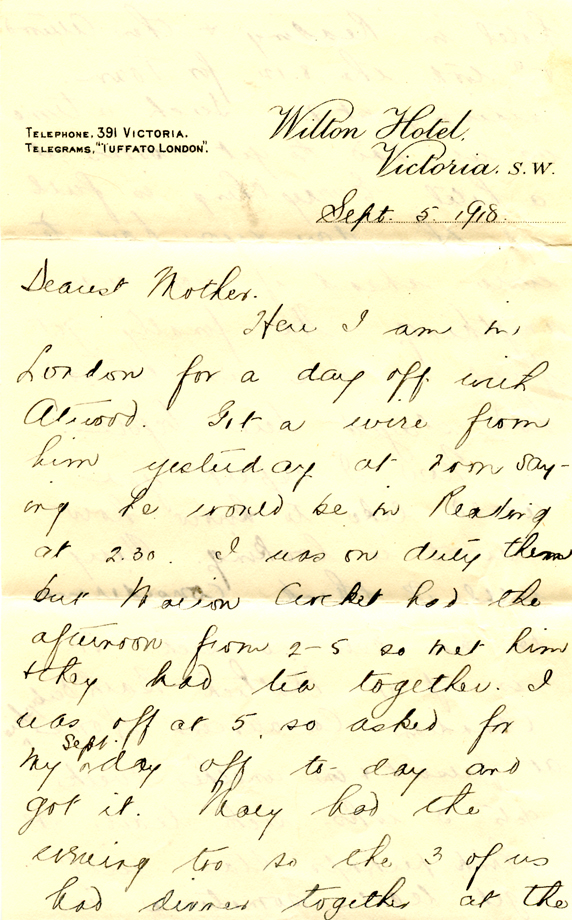 TELEPHONE. 391 VICTORIA.
TELEGRAMS, "TUFFATO LONDON".
Wilton Hotel,
Victoria. S.W.
Sept. 5. 1918.
Dearest Mother.
Here I am in
London for a day off with
Atwood. Got a wire from
him yesterday at noon say-
ing he would be in Reading
at 2.30. I was on duty then
but Marion Crocket had the
afternoon from 2-5 so met him
& they had tea together. I
was off at 5, so asked for
my Sept. day off to-day and
got it. Mary had the
evening too so the 3 of us
had dinner together at the